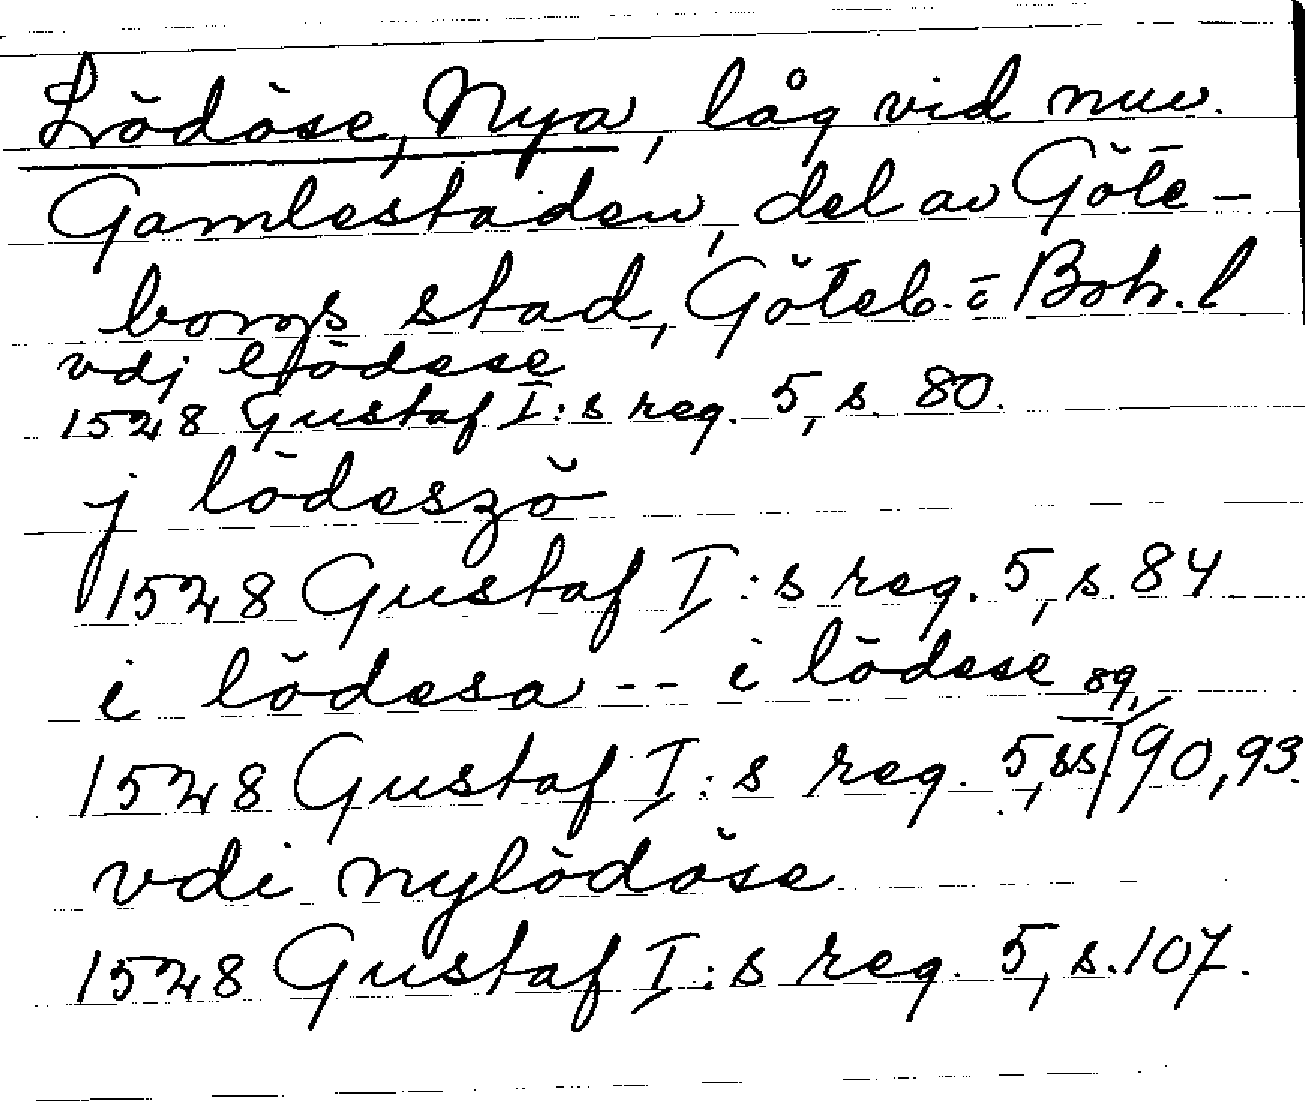 Lödöse, Nya, låg vid nuv.
Gamlestaden, del av Göte-
borgs stad, Göteb. o Boh. l
vdj lödese
1528 Gustaf I:s reg. 5, s. 80.
j lödeszö
1528 Gustaf I:s reg. 5, s. 84
i lödesa -- i lödese
1528 Gustaf I:s reg. 5, ss. 89, 90, 93.
vdi nylödöse
1528 Gustaf I:s reg. 5, s. 107.